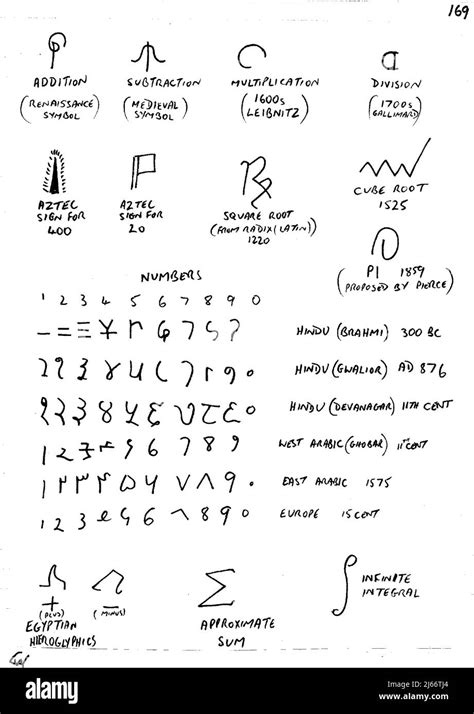 169
ADDITION
(RENAISSANCE)
SYMBOL
SUBTRACTION
(MEDIEVAL)
SYMBOL
MULTIPLICATION
(1600s
LEIBNITZ)
DIVISION
(1700s
GALLIMARD)
AZTEC
SIGN FOR
400
AZTEC
SIGN FOR
20
SQUARE ROOT
(FROM RADIX (LATIN))
1220
CUBE ROOT
1525
PI 1859
(PROPOSED BY PIERCE)
NUMBERS
1 2 3 4 5 6 7 8 9 0
HINDU (BRAHMI) 300 BC
HINDU (GWALIOR) AD 876
HINDU (DEVANAGAR) 11TH CENT
WEST ARABIC (GHOBAR) 11TH CENT
EAST ARABIC 1575
EUROPE 15 CENT
+
(PLUS)
(MINUS)
EGYPTIAN
HIEROGLYPHICS
∑
APPROXIMATE
SUM
∫
INFINITE
INTEGRAL
alamy
Image ID: 2J66TJ4
www.alamy.com